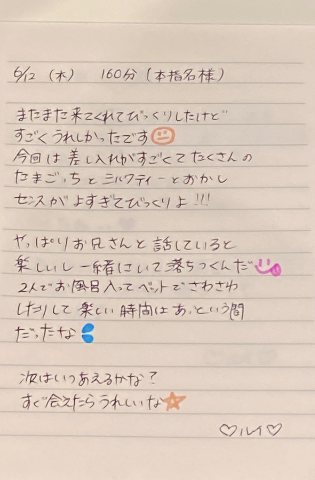 6/12 (木) 160分 (本指名様)
またまた来てくれてびっくりしたけど
すごくうれしかったです
今回は差し入れがすごくてたくさんの
たまごっちとミルクティーとおかし
センスがよすぎてびっくりよ!!!
やっぱりお兄さんと話していると
楽しいし一緒にいて落ちつくんだ
2人でお風呂入ってベットでさわさわ
したりして楽しい時間はあっという間
だったな
次はいつあえるかな?
すぐ会えたらうれしいな
♡ルイ♡